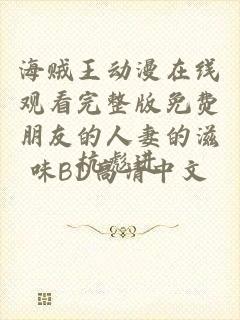 海贼王动漫在线
观看完整版免费
朋友的人妻的滋
味BD高清中文
杭彪进